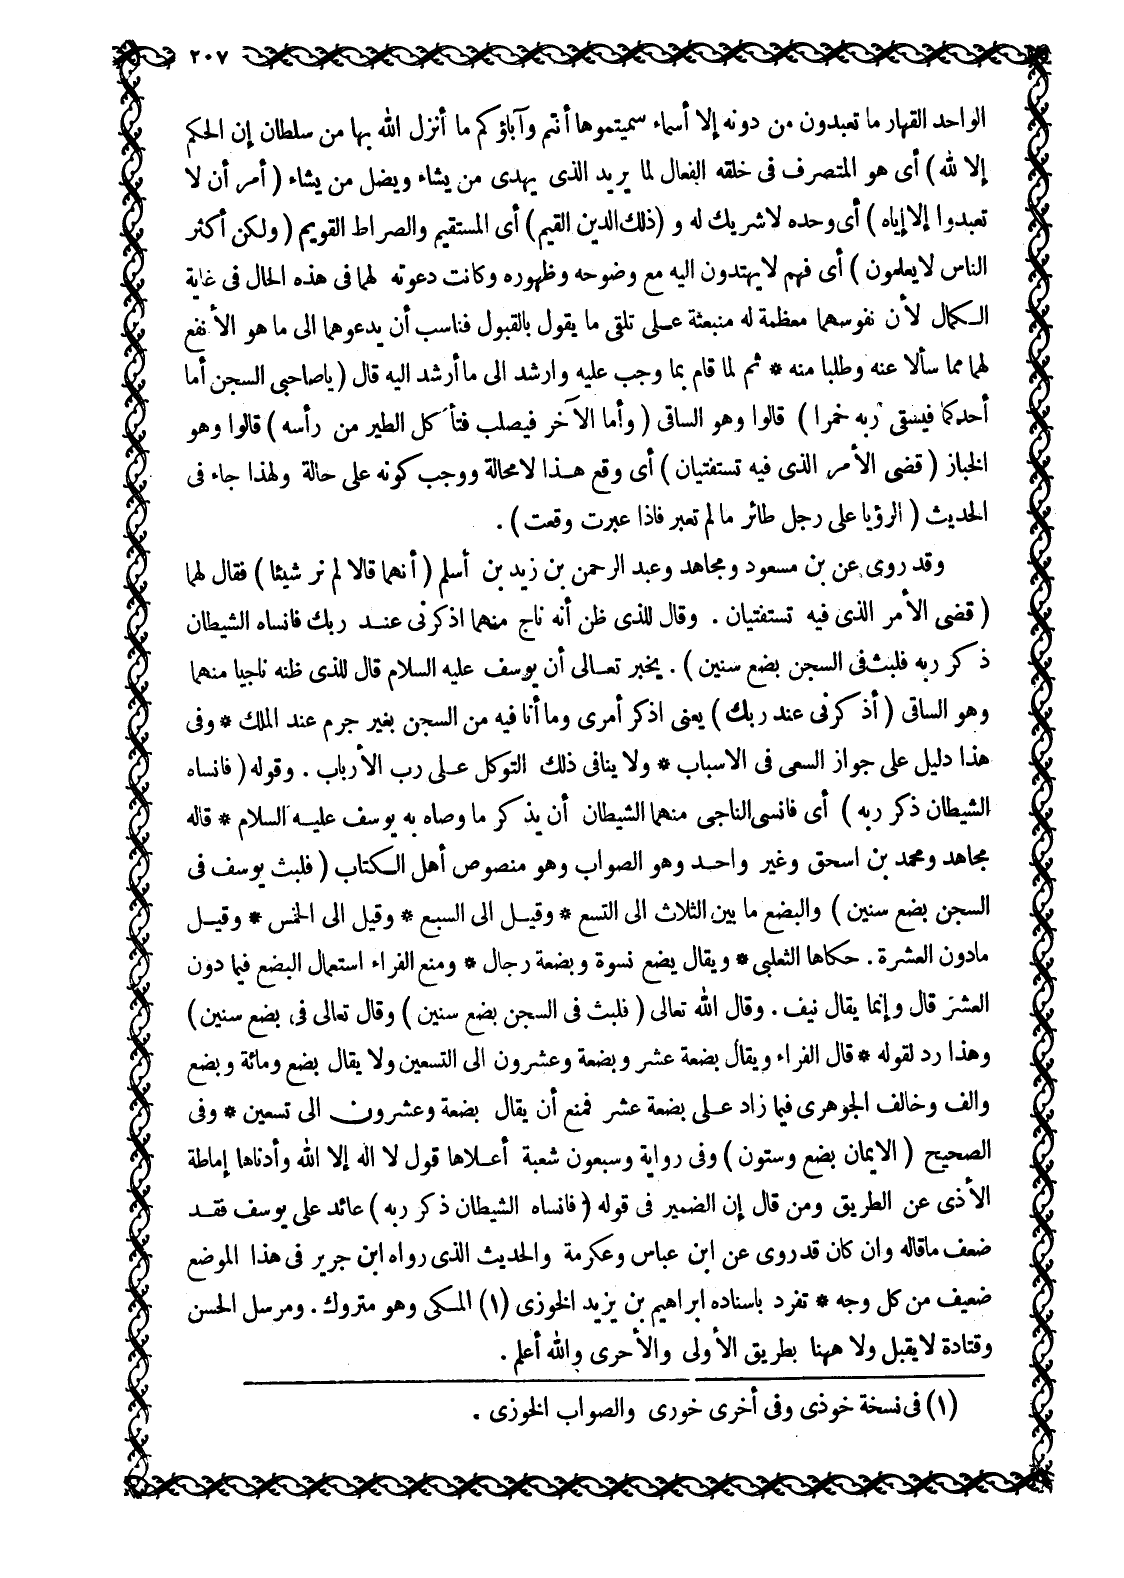 ٢٠٧
الواحد القهار ما تعبدون من دونه إلا أسماء سميتموها أنتم وآباؤكم ما أنزل الله بها من سلطان إن الحكم
إلا لله ) أى هو المتصرف فى خلقه الفعال لما يريد الذى يهدى من يشاء ويضل من يشاء ( أمر أن لا
تعبدوا إلا إياه ) أى وحده لا شريك له و (ذلك الدين القيم) أى المستقيم والصراط القويم ( ولكن أكثر
الناس لا يعلمون ) أى فهم لا يهتدون اليه مع وضوحه وظهوره وكانت دعوته لهما فى هذه الحال فى غاية
الكمال لأن نفوسهما معظمة له منبعثة على تلقى ما يقول بالقبول فناسب أن يدعوهما الى ما هو الأنفع
لهما مما سألا عنه وطلبا منه * ثم لما قام بما وجب عليه وارشد الى ما أرشد اليه قال ( ياصاحبى السجن أما
أحدكما فيسقى ربه خمرا ) قالوا وهو الساقى ( وأما الآخر فيصلب فتأكل الطير من رأسه ) قالوا وهو
الخباز ( قضى الأمر الذى فيه تستفتيان ) أى وقع هذا لا محالة ووجب كونه على حالة ولهذا جاء فى
الحديث ( الرؤيا على رجل طائر ما لم تعبر فاذا عبرت وقعت ) .
وقد روى عن بن مسعود ومجاهد وعبد الرحمن بن زيد بن أسلم ( أنهما قالا لم نر شيئا ) فقال لهما
( قضى الأمر الذى فيه تستفتيان . وقال للذى ظن أنه ناج منهما اذكرنى عند ربك فانساه الشيطان
ذكر ربه فلبث فى السجن بضع سنين ) . يخبر تعالى أن يوسف عليه السلام قال للذى ظنه ناجيا منهما
وهو الساقى ( أذكرنى عند ربك ) يعنى اذكر أمرى وما أنا فيه من السجن بغير جرم عند الملك * وفى
هذا دليل على جواز السعى فى الاسباب * ولا ينافى ذلك التوكل على رب الأرباب . وقوله ( فانساه
الشيطان ذكر ربه ) أى فانسى الناجى منهما الشيطان أن يذكر ما وصاه به يوسف عليه السلام * قاله
مجاهد ومحمد بن اسحق وغير واحد وهو الصواب وهو منصوص أهل الكتاب ( فلبث يوسف فى
السجن بضع سنين ) والبضع ما بين الثلاث الى التسع * وقيل الى السبع * وقيل الى الخمس * وقيل
مادون العشرة . حكاها الثعلبى * ويقال يضع نسوة وبضعة رجال * ومنع الفراء استعمال البضع فيما دون
العشر قال وإنما يقال نيف . وقال الله تعالى ( فلبث فى السجن بضع سنين ) وقال تعالى فى بضع سنين )
وهذا رد لقوله * قال الفراء ويقال بضعة عشر وبضعة وعشرون الى التسعين ولا يقال بضع ومائة وبضع
والف وخالف الجوهرى فيما زاد على بضعة عشر فمنع أن يقال بضعة وعشرون الى تسعين * وفى
الصحيح ( الايمان بضع وستون ) وفى رواية وسبعون شعبة أعلاها قول لا اله إلا الله وأدناها إماطة
الأذى عن الطريق ومن قال إن الضمير فى قوله ( فانساه الشيطان ذكر ربه ) عائد على يوسف فقد
ضعف ماقاله وان كان قد روى عن ابن عباس وعكرمة والحديث الذى رواه ابن جرير فى هذا الموضع
ضعيف من كل وجه * تفرد باسناده ابراهيم بن يزيد الخوزى (١) المكى وهو متروك . ومرسل الحسن
وقتادة لا يقبل ولا ههنا بطريق الأولى والأحرى والله أعلم .
(١) فى نسخة خوذى وفى أخرى خورى والصواب الخوزى .